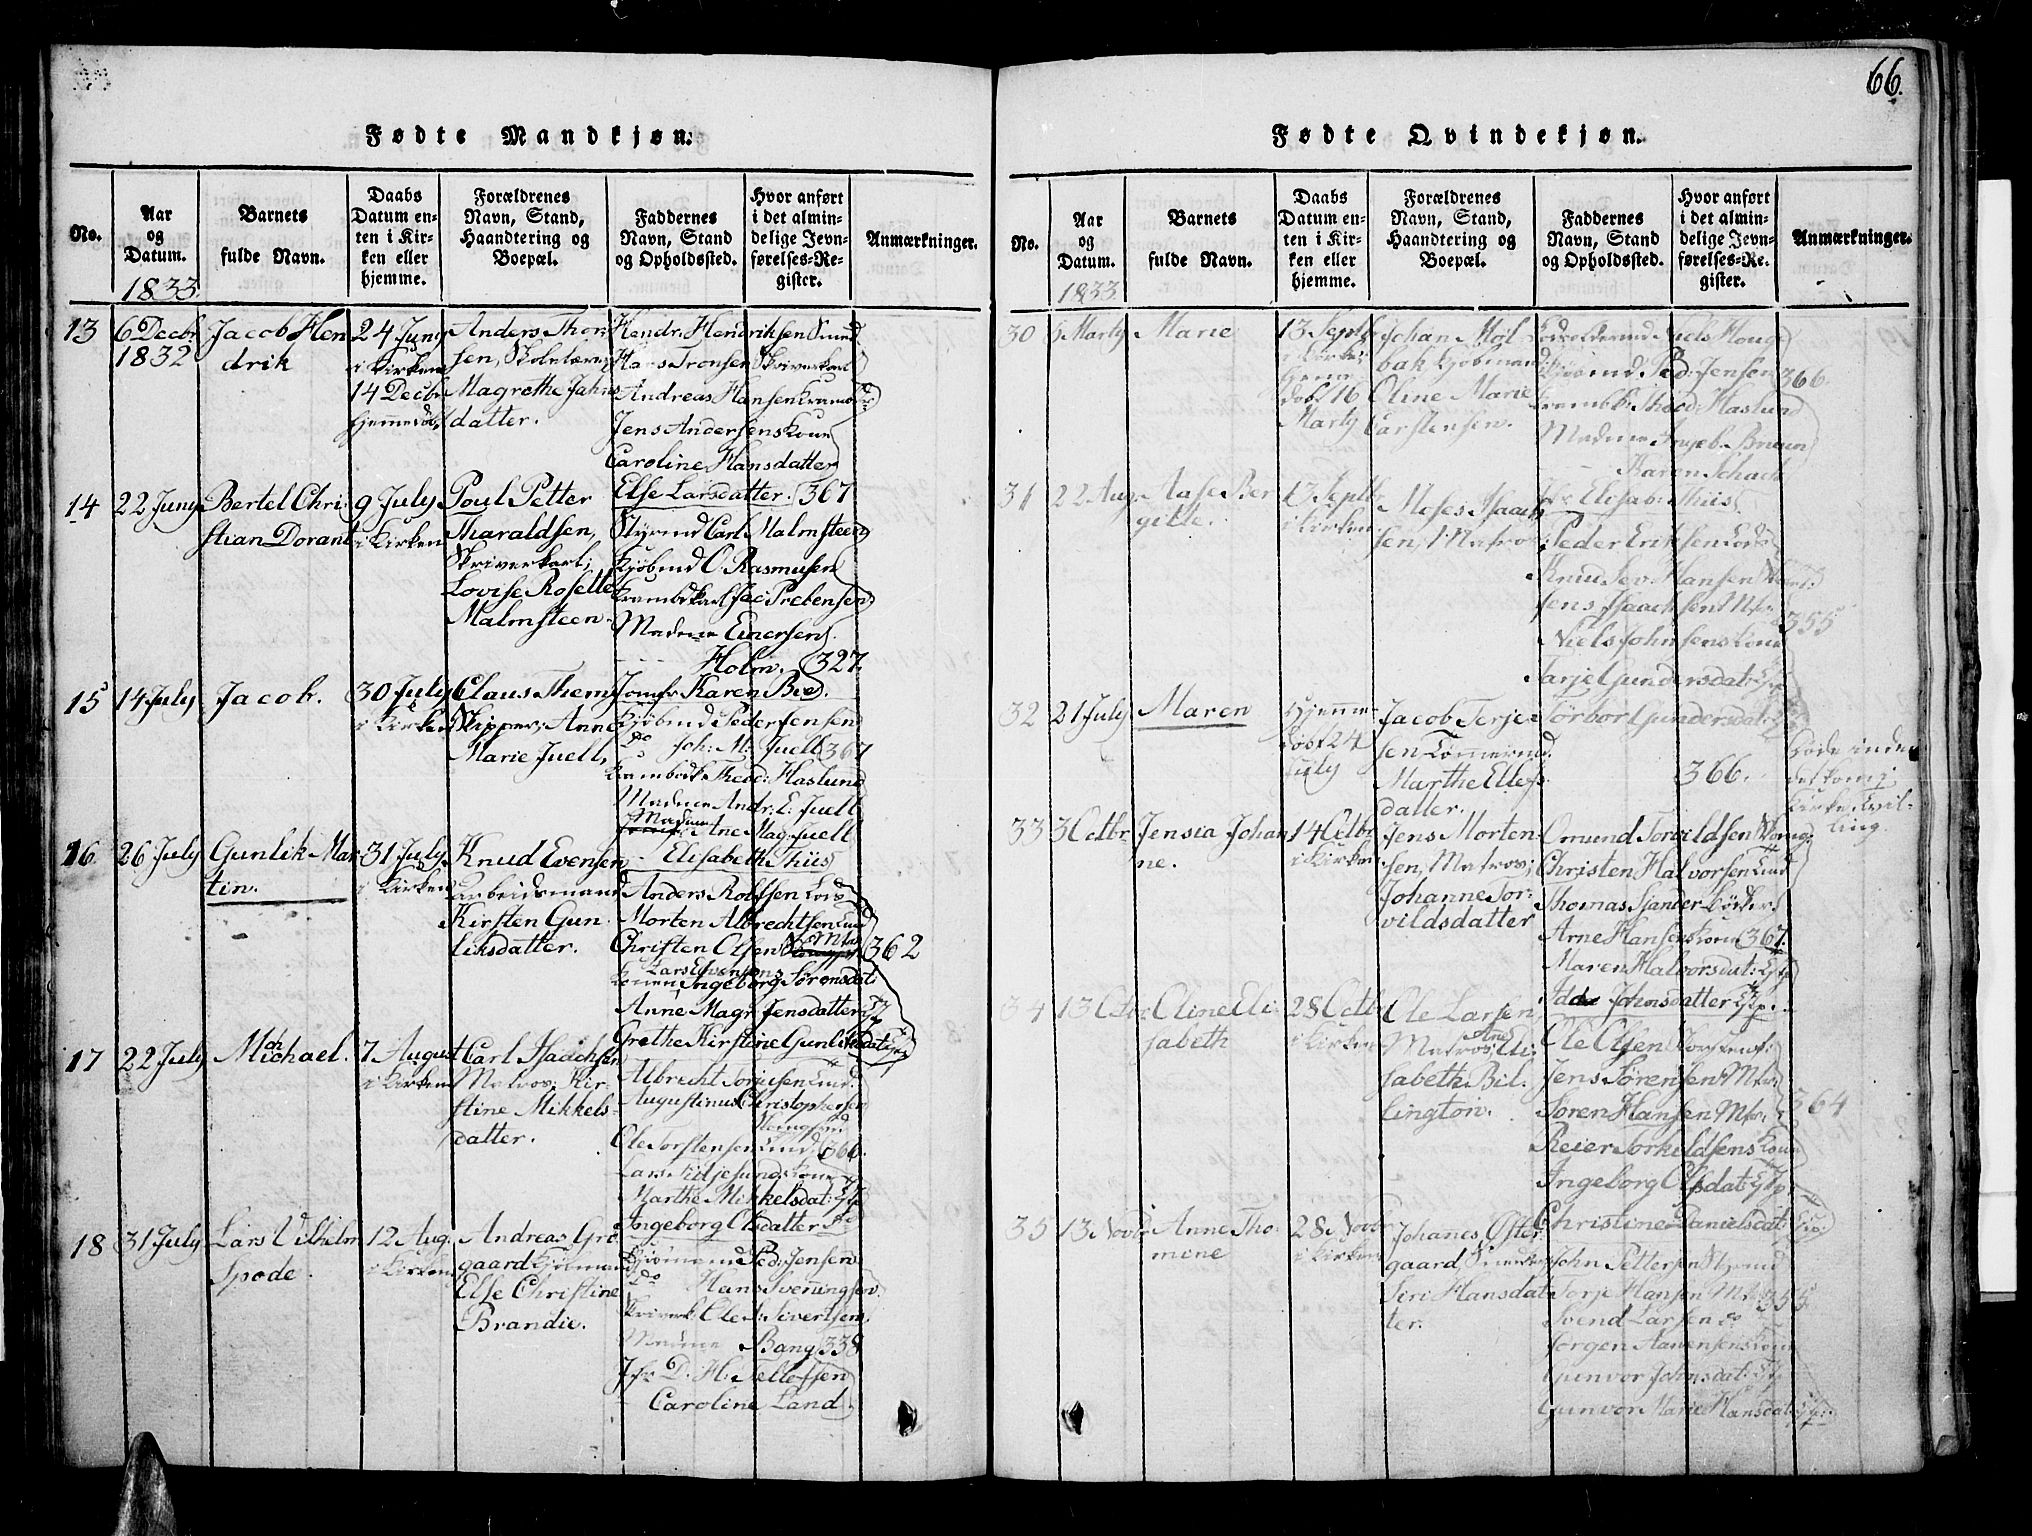 66.
Fødte Mandkjøn.
No.
Aar
og
Datum.
1833.
Barnets
fulde Navn.
Daabs
Datum en-
ten i Kir-
ken eller
hjemme.
Forældrenes
Navn, Stand,
Haandtering og
Boepæl.
Faddernes
Navn, Stand
og Opholdssted.
Hvor anført
i det almin-
delige Jevn-
førelses-Re-
gister.
Anmærkninger.
13
6 Decbr
1832
Jacob Hen
drik
24 Juny
i Kirken
14 Decbr
hjemedøbt
Anders Thom
sen, Skolelærer
Magrethe Jahns
datter.
Hendr. Hendriksen Smed
Hans Tronsen Skriverkarl
Andreas Hansen
Jens Andersens Kone
Caroline Hansdatter
Else Larsdatter. 367
14
22 Juny
Bertel Chri
stian Dorant
9 July
i Kirken
Poul Petter
Tharaldsen,
Skriverkarl;
Lovise Rosette
Malmsteen
Styrmd Carl Malmsteen
Kjøbmd O. Rasmusen
Krambdkarl Jac: Prebensen
Madme Einersen
Holm. 327.
15
14 July
Jacob.
30 July
i Kirken
Claus Them
Skipper; Anne
Marie Juell,
Jomfr Karen Bie
Kjøbmd Peder Jensen
Do Joh: M: Juell 367
Krambodk Theod: Haslund
Madme Andr: E. Juell
Madme Ane Mag: Juell
- Elisabethe Thiis
16.
26 July
Gunlik Mar
tin.
31 July
i Kirken
Knud Evensen
arbeidsmand
Kirsten Gun
liksdatter.
Anders Rolfsen Lods
Morten Albrechtsen
Christen Olsen Mtrs 362
Lars Evensens
Konen, Ingeborg Sørensdat:
Anne Magr Jensdatter
Grethe Kirstine Gunliksdat
17
22 July
Michael.
7 August
i Kirken
Carl Isachsen
Matros; Kir-
stine Mikkels-
datter.
Albrecht Torjusen
Augustinus Christophersen
Ole Torstensen 366.
Marthe Mikkelsdat:
Ingeborg Olsdatter
18
31 July
Lars Vilhelm
Spode.
12 Aug.
i Kirken
Andreas Gro
gaard Kjøbmand
Else Christine
Brandie.
Kjøbmand Ped: Jensen
Do Hans Svenningsen
Skriverk Ole J: Sivertsen
Madme Bang 338
Jfr D. H. Tellefsen
Caroline Land
Fødte Qvindekjøn.
No.
Aar
og
Datum.
1833
Barnets
fulde Navn.
Daabs
Datum en-
ten i Kir-
ken eller
hjemme.
Forældrenes
Navn, Stand,
Haandtering og
Boepæl.
Faddernes
Navn, Stand
og Opholdssted.
Hvor anført
i det almin-
delige Jevn-
førelses-Re-
gister.
Anmærkninger.
30
5 Marty
Marie
13 Septbr
i Kirken
hjeme
døbt 16
Marty
Johan Møl
bak Kjøbmand
Oline Marie
Carstensen.
Niels Houge
Kjøbmd Ped: Jensen 366.
Krambk: Theod: Haslund
Madme Ingeb. Bruun
- Karen Schach
Jfr Elisab: Thiis
31
22 Aug.
Aase Ber
gitte.
13 Septbr
i Kirken
Moses Isach
sen, Matros
Peder Eriksen Lods
Knud Sev: Hansen
Jens Isaachsen Mtr 355
Niels Johnsens Kone
Tarje Gundersdat:
Torbor Gundersdat
32
21 July
Maren
Hjemme
døbt 24
July
Jacob Terje
sen Tømermd
Marthe Ellefs
datter.
366.
Døde inden
det kom i
Kirke. Tvil-
ling.
33
3 Octbr
Jensia Johan
ne.
14 Octbr
i Kirken
Jens Morten
sen, Matros;
Johanne Tor
vildsdatter
Omund Torvildsen
Christen Halvorsen
Thomas Sjander Bødker
Arne Hansens Kone 367.
Maren Halvorsdat:
Johnsdatter
34
13 Octbr
Oline Eli
sabeth
28 Octbr
i Kirken
Ole Larsen
Matros; Ane Eli
sabeth Bil
lington.
Ole Olsen
Jens Sørensen Mtr.
Søren Hansen Mtr. 364
Reier Torkeldsens Kone
Ingeborg Olsdat:
Christine Danielsdat:
35
13 Novbr
Anne Tho
mine
28 Novbr
i Kirken
Johanes Øster
gaard, Snedker
Siri Hansdat
ter.
John Pettersen Styrmd
Torje Hansen Mtr 355
Svend Larsen do
Jørgen Aanensens Kone
Gunvor Johnsdat:
Gunvor Marie Hansdat